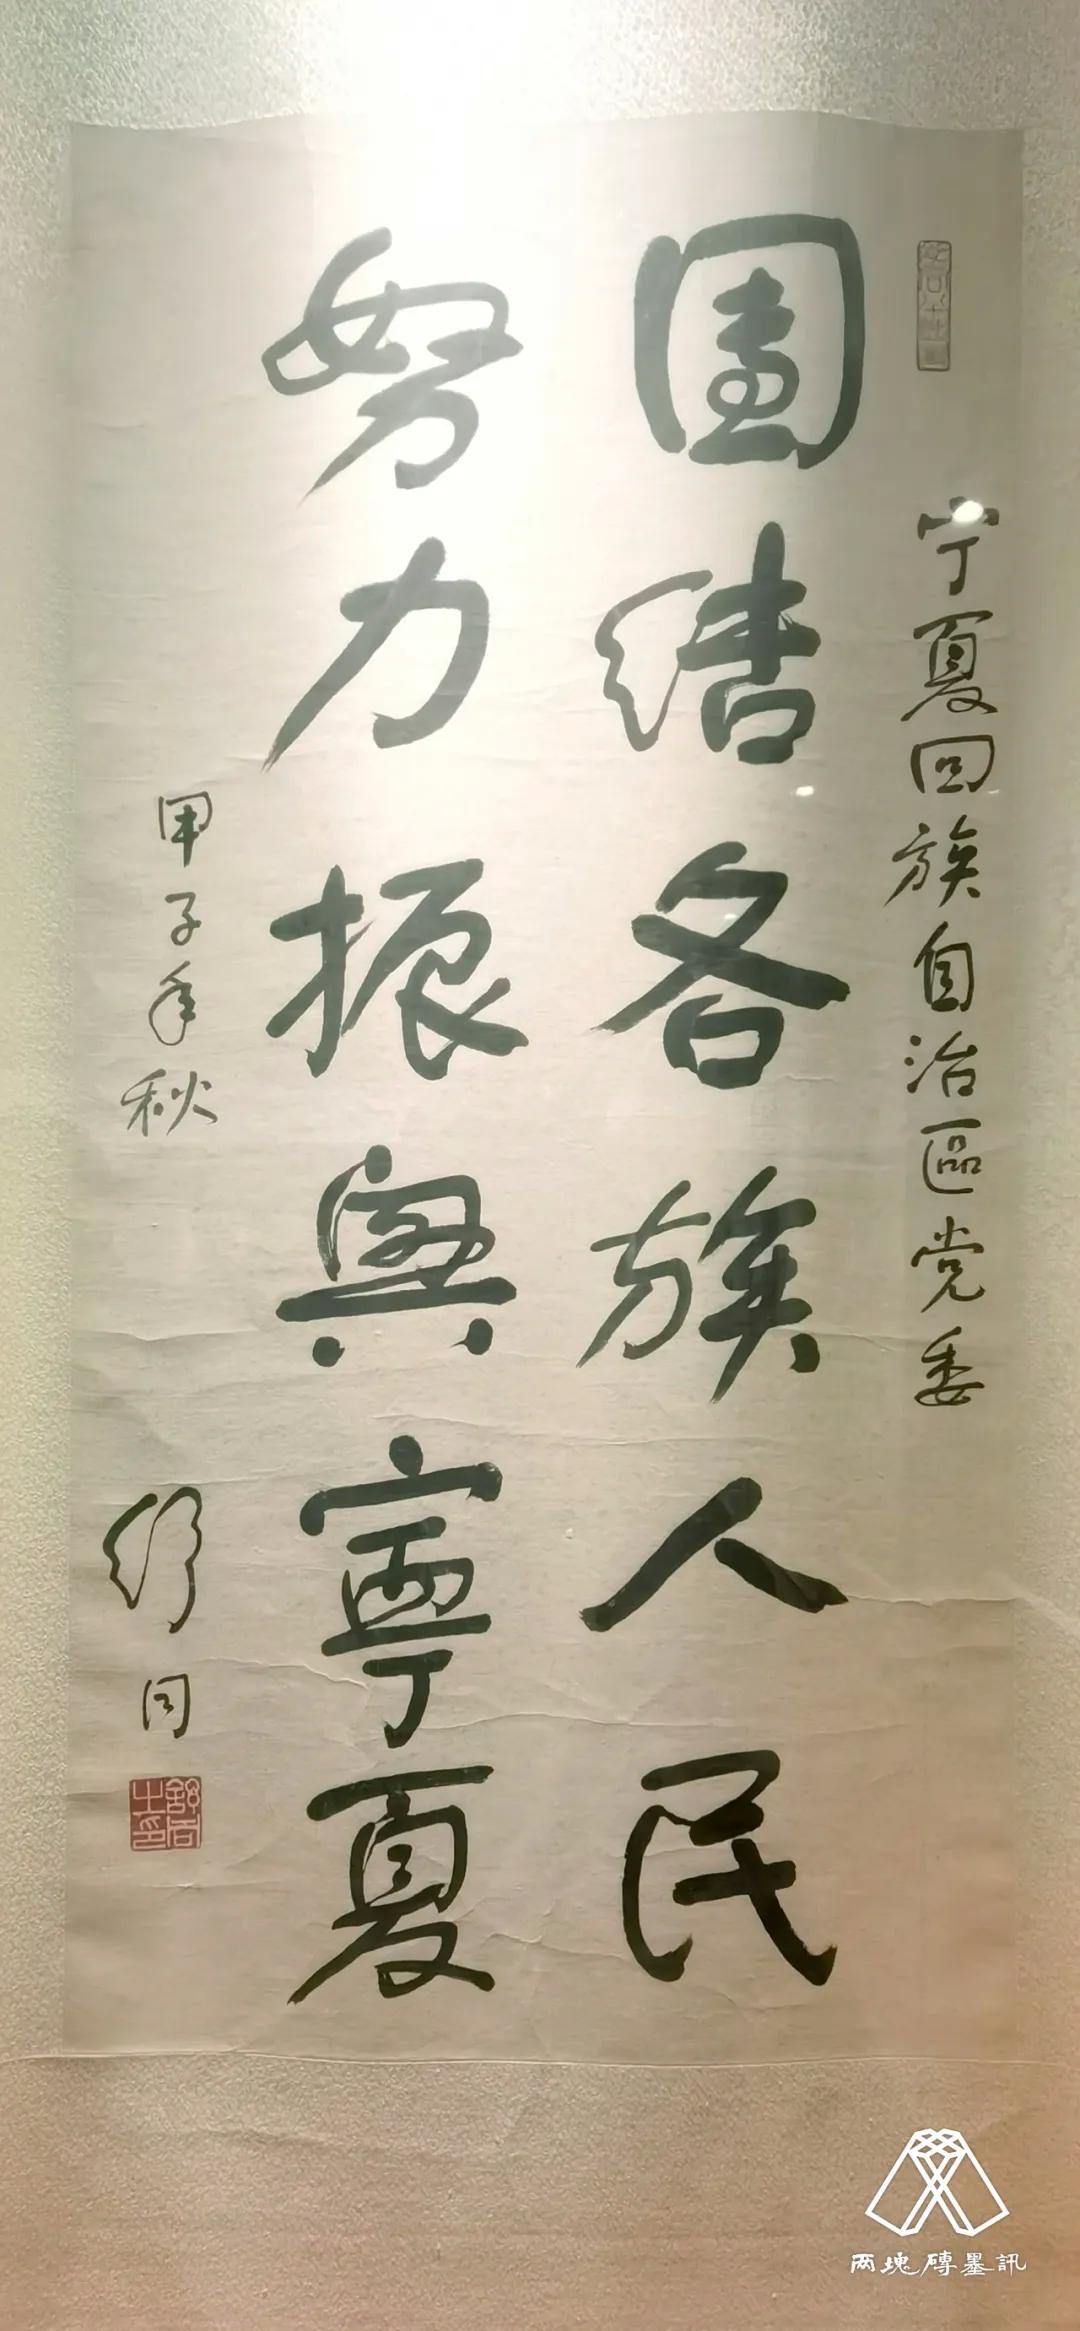 宁夏回族自治區党委
團结各族人民
努力振興寧夏
甲子年秋
舒同
舒同之印
两塊磚墨訊